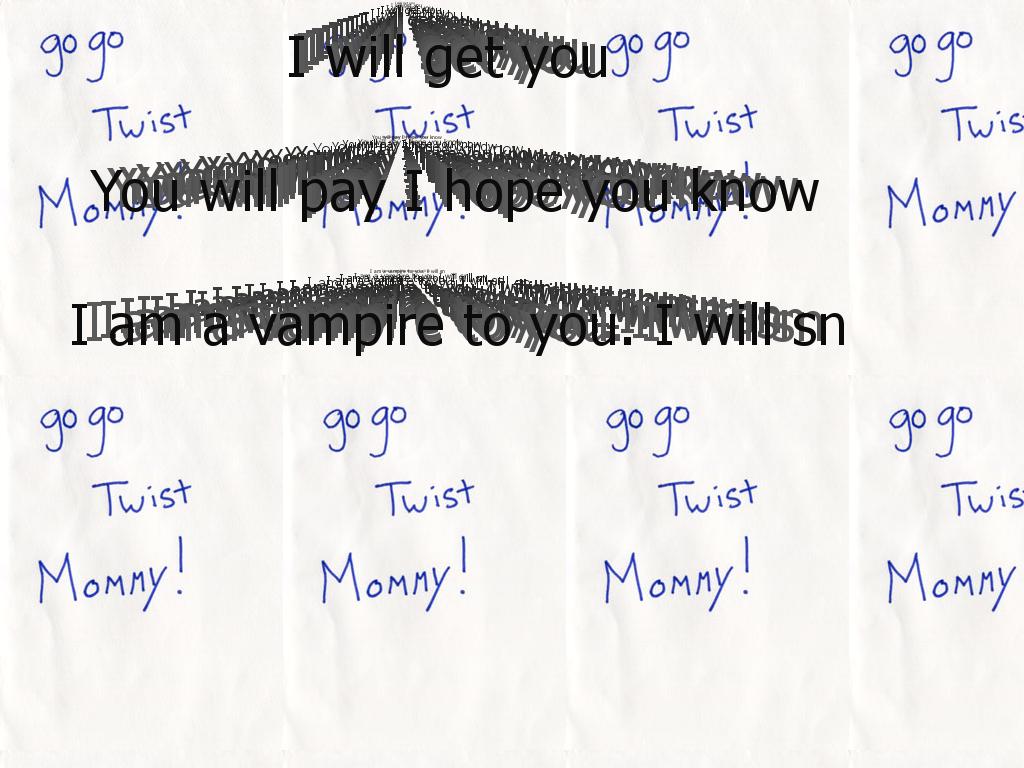 I will get you
You will pay I hope you know
I am a vampire to you. I will sn
go go go go go go go go
Twist Twist Twist Twis
Mommy! Mommy! Mommy! Mommy
go go go go go go go go
Twist Twist Twist Twis
Mommy! Mommy! Mommy! Mommy